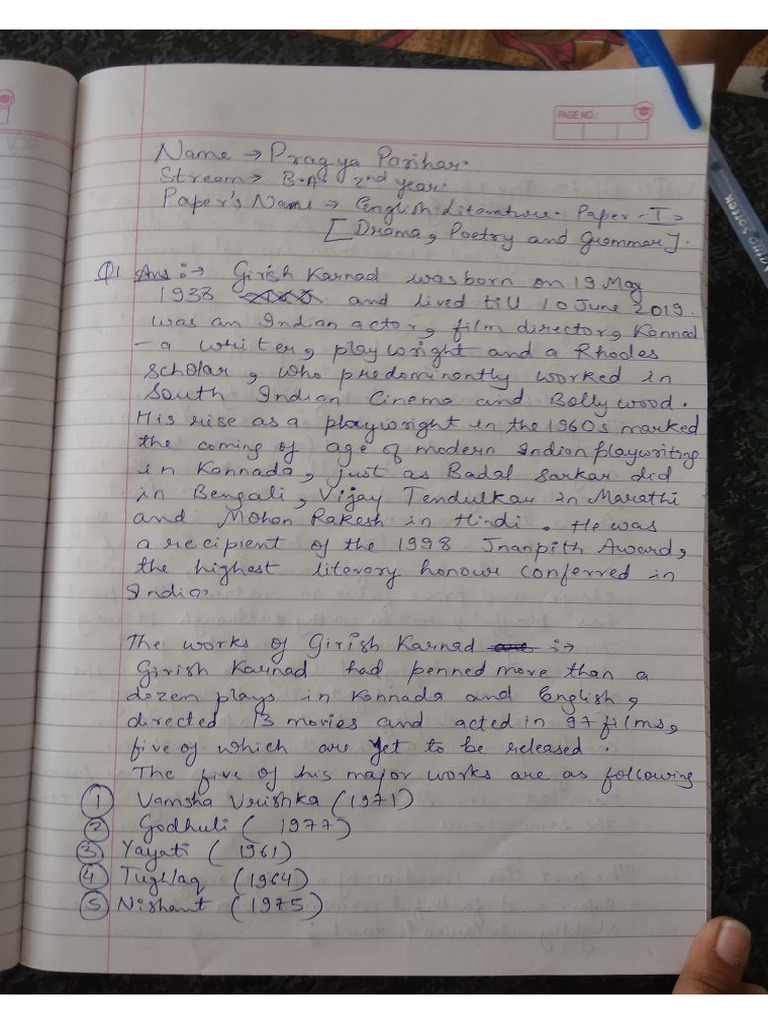 PAGE NO.:
Name → Pragya Parihar.
Stream → B.A. 2nd year.
Paper's Name → English Literature. Paper - I.
[Drama, Poetry and Grammar].
Q1 Ans :→ Girish Karnad was born on 19 May
1938 and lived till 10 June 2019.
was an Indian actor, film director, Kannad
- a writer, playwright and a Rhodes
scholar, who predominantly worked in
South Indian Cinema and Bollywood.
His rise as a playwright in the 1960s marked
the coming of age of modern Indian playwriting
in Kannada, just as Badal Sarkar did
in Bengali, Vijay Tendulkar in Marathi
and Mohan Rakesh in Hindi. He was
a recipient of the 1998 Jnanpith Award,
the highest literary honour conferred in
India.
The works of Girish Karnad are :→
Girish Karnad had penned more than a
dozen plays in Kannada and English,
directed 13 movies and acted in 97 films,
five of which are yet to be released.
The five of his major works are as following
① Vamsha Vrishka (1971)
② Godhuli ( 1977)
③ Yayati ( 1961)
④ Tughlaq (1964)
⑤ Nishant (1975)